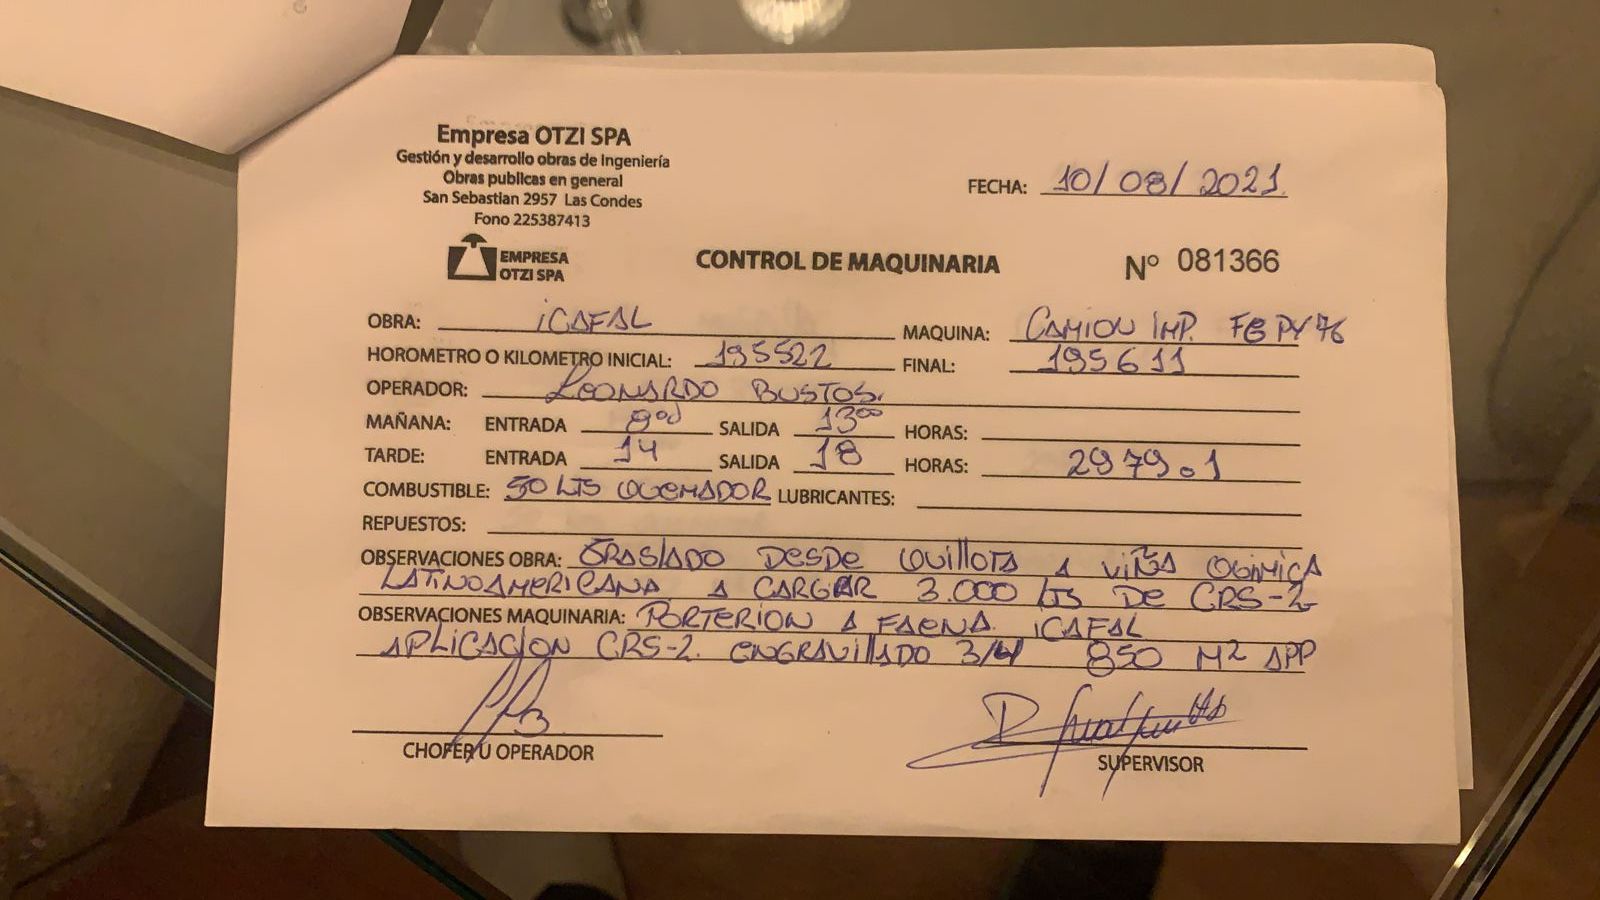 Empresa OTZI SPA
Gestión y desarrollo obras de Ingeniería
Obras publicas en general
San Sebastian 2957 Las Condes
Fono 225387413
FECHA: 10/08/2021
EMPRESA
OTZI SPA
CONTROL DE MAQUINARIA
N° 081366
OBRA: iCAFAL MAQUINA: CAMION IMP. FGPY76
HOROMETRO O KILOMETRO INICIAL: 195522 FINAL: 195611
OPERADOR: LEONARDO BUSTOS.
MAÑANA: ENTRADA 8:00 SALIDA 13:00 HORAS:
TARDE: ENTRADA 14 SALIDA 18 HORAS: 2979.1
COMBUSTIBLE: 50 LTS QUEMADOR LUBRICANTES:
REPUESTOS:
OBSERVACIONES OBRA: TRASLADO DESDE QUILLOTA A VIÑA QUIMICA
LATINOAMERICANA A CARGAR 3.000 LTS DE CRS-2
OBSERVACIONES MAQUINARIA: PORTERION A FAENA iCAFAL
APLICACION CRS-2. ENGRAVILLADO 3/4 850 M2 APP
CHOFER U OPERADOR
SUPERVISOR